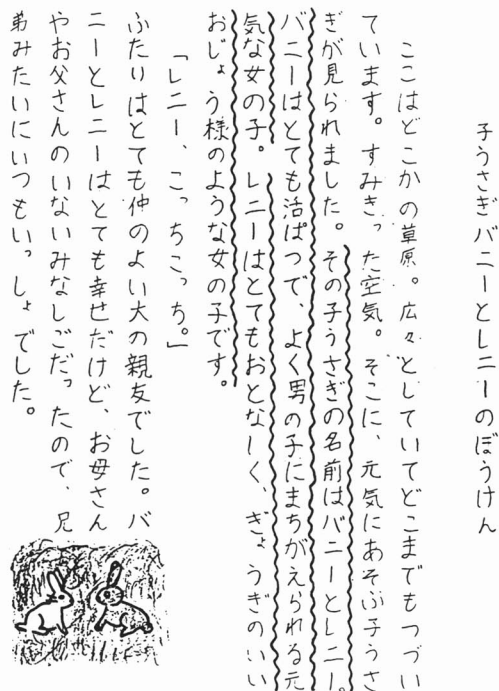 子うさぎバニーとレニーのぼうけん
ここはどこかの草原。広々としていてどこまでもつづい
ています。すみきった空気。そこに、元気にあそぶ子うさ
ぎが見られました。その子うさぎの名前はバニーとレニー。
バニーはとても活ぱつで、よく男の子にまちがえられる元
気な女の子。レニーはとてもおとなーしく、ぎょうぎのいい
おじょう様のような女の子です。
「レニー、こっちこっち。」
ふたりはとても仲のよい大の親友でした。バ
ニーとレニーはとても幸せだけど、お母さん
やお父さんのいないみなしごだったので、兄
弟みたいにいつもいっしょでした。